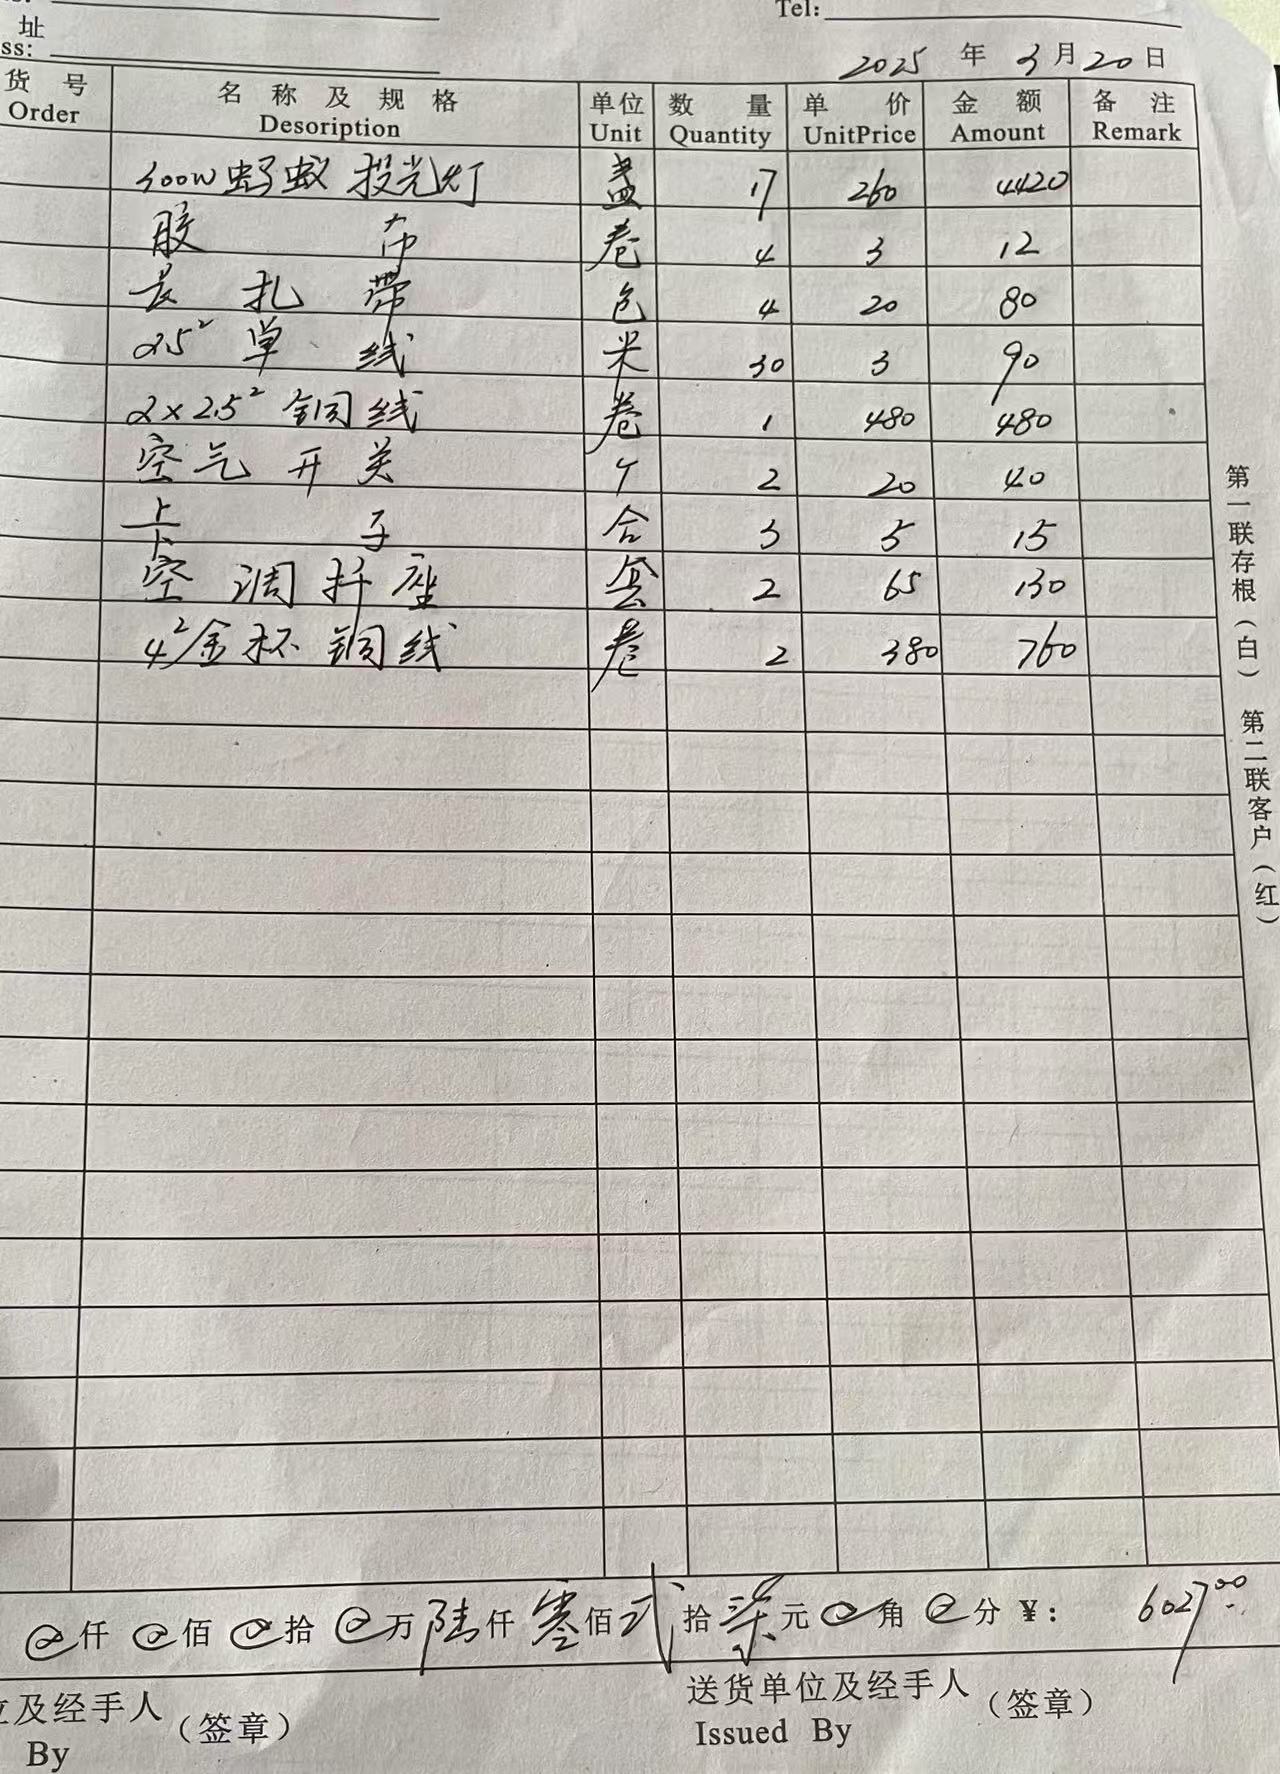 Tel:
址
ss:
2025 年 3 月 20 日
货 号 名 称 及 规 格 单位 数 量 单 价 金 额 备 注
Order Desoription Unit Quantity UnitPrice Amount Remark
300W 蚂蚁 投光灯 盏 17 260 4420
胶 布 卷 4 3 12
长 扎 带 包 4 20 80
2.5² 单 线 米 30 3 90
2×2.5² 铜线 卷 1 480 480
空气开关 个 2 20 40
卡 子 合 3 5 15
空调扦座 套 2 65 130
4²金杯铜线 卷 2 380 760
第一联存根（白） 第二联客户（红）
仟 佰 拾 万 陆 仟 零 佰 弍 拾 柒 元 角 分 ¥: 6027.00
位及经手人（签章） 送货单位及经手人（签章）
By Issued By